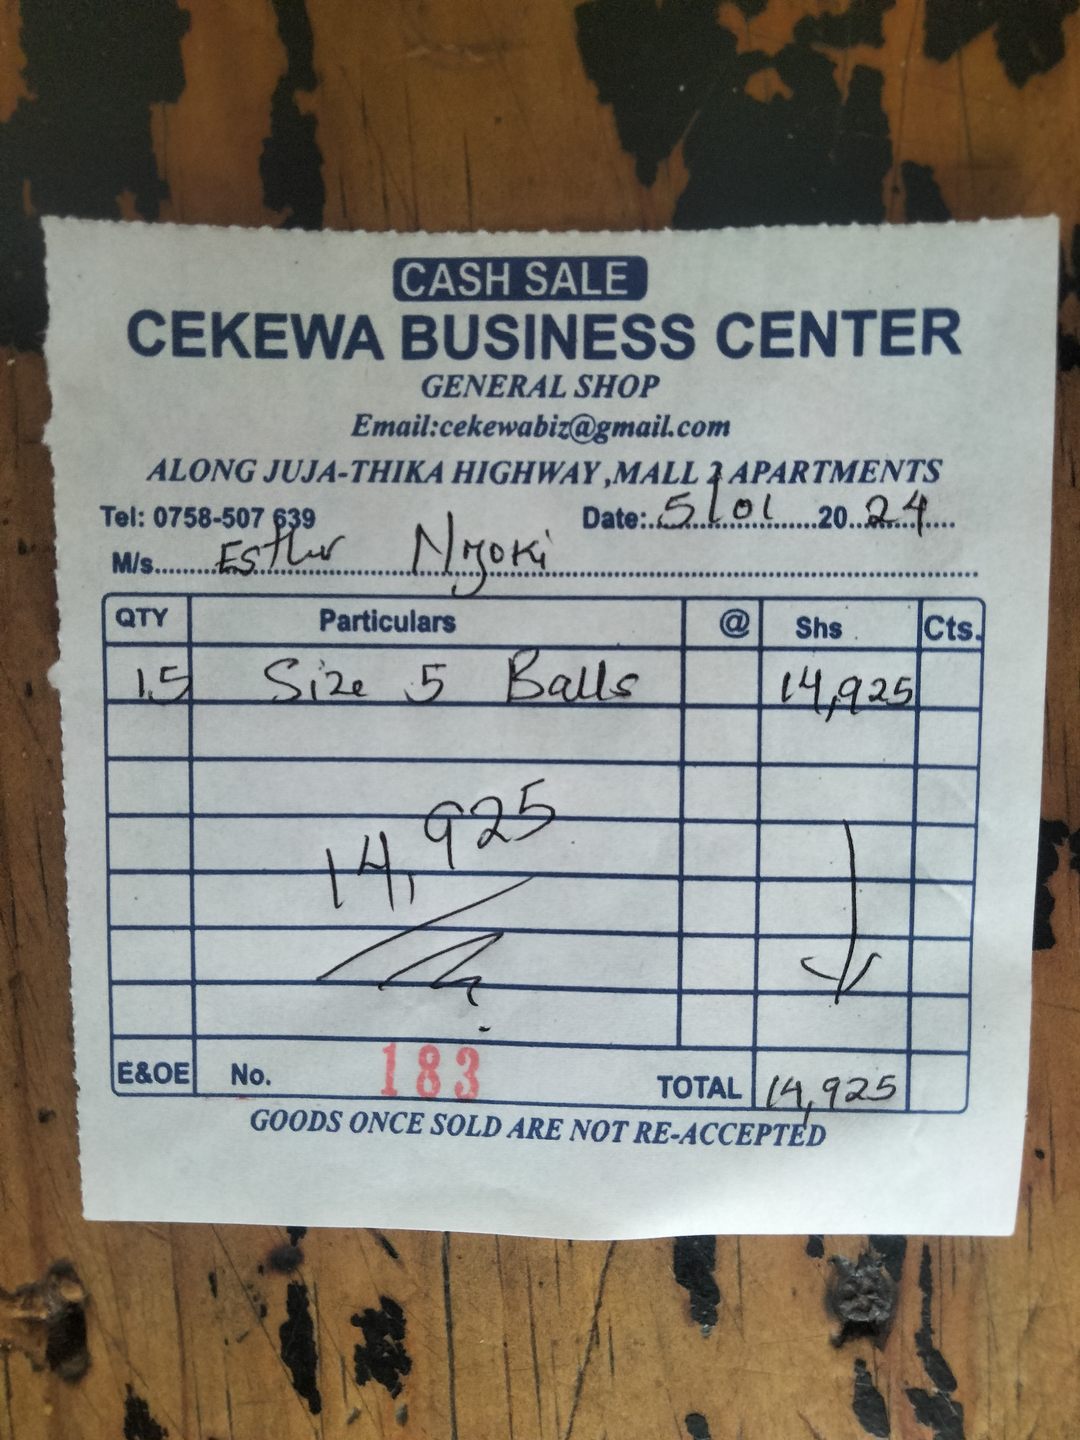 CASH SALE
CEKEWA BUSINESS CENTER
GENERAL SHOP
Email:cekewabiz@gmail.com
ALONG JUJA-THIKA HIGHWAY ,MALL 2 APARTMENTS
Tel: 0758-507 639 Date:..5/01....20..24....
M/s......Esther Njoki
QTY Particulars @ Shs . Cts.
15 Size 5 Balls 14,925
14,925
E&OE No. 183 TOTAL 14,925
GOODS ONCE SOLD ARE NOT RE-ACCEPTED